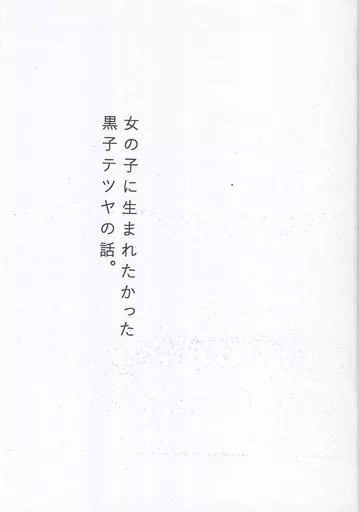 女の子に生まれたかった
黒子テツヤの話。